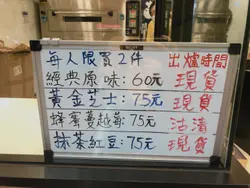 每人限買2件 出爐時間
經典原味:60元 現貨
黃金芝士:75元 現貨
蜂蜜蔓越莓:75元 沽清
抹茶紅豆:75元 現貨